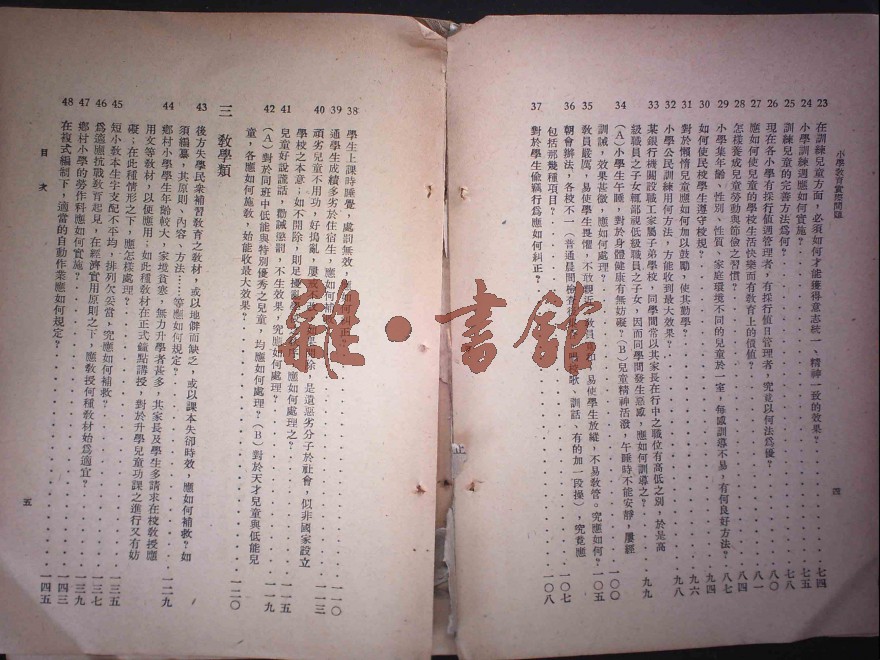 小學教育實際問題
四
23 在訓練兒童方面，必須如何才能獲得意志統一、精神一致的效果？七四
24 小學訓練週應如何實施？七五
25 訓練兒童的完善方法爲何？七八
26 現在各小學有採行値週管理者，有採行値日管理者，究竟以何法爲優？八〇
27 應如何使兒童的學校生活快樂而有教育上的價値？八一
28 怎樣養成兒童勞動與節儉之習慣？八四
29 小學集年齡、性別、性質、家庭環境不同的兒童於一室，每感訓導不易，有何良好方法？八七
30 如何使民校學生遵守校規？九四
31 對於懶惰兒童應如何加以鼓勵，使其勤學？九六
32 小學公民訓練用何方法，方能收到最大效果？九八
33 某銀行機關設職工家屬子弟學校，同學間常以其家長在行中之職位有高低之別，於是高
級職員之子女輒鄙視低級職員之子女，因而同學間發生惡感，應如何訓導之？九九
34 （A）小學生午睡，對於身體健康有無妨礙？（B）兒童精神活潑，午睡時不能安靜，屢經
訓誡，效果甚微，應如何處理？一〇〇
35 教員嚴厲，易使學生畏懼，不敢親近；教員和，易使學生放縱，不易教管。究應如何？一〇五
36 朝會辦法，各校不一（普通晨間檢查、唱歌、訓話、有的加一段操），究竟應
包括那幾種項目？一〇七
37 對於學生偷竊行爲應如何糾正？一〇八
38 學生上課時睡覺，處罰無效，應如何糾正？一一〇
39 通學生成績多劣於住宿生，應如何補
40 頑劣兒童不用功，好搗亂，屢戒不改，如果開除，是遺惡劣分子於社會，似非國家設立
學校之本意；如不開除，則足擾亂學校秩序，應如何處理之？一一三
41 兒童好說謊話，勸誡懲罰，不生效果，究應如何處理？一一五
42 （A）對於同班中低能與特別優秀之兒童，均應如何處理？（B）對於天才兒童與低能兒
童，各應如何施教，始能收最大效果？一一九
三 教學類一二〇
43 後方失學民衆補習教育之教材，或以地僻而缺乏，或以課本失卻時效，應如何補救？如
須編纂，其原則、內容、方法……等應如何規定？
44 鄉村小學學生年齡較大，家境貧寒，無力升學者甚多，其家長及學生多請求在校教授應
用文等教材，以便應用；如此種教材在正式鐘點講授，對於升學兒童功課之進行又有妨
礙；在此種情形之下，應怎樣處理？一二九
45 短小教本生字支配不平均，排列欠妥當，究應如何補救？一三五
46 爲適應抗戰教育起見，在經濟實用原則之下，應教授何種教材始爲適宜？一三七
47 鄉村小學的勞作科應如何實施？一三九
48 在複式編制下，適當的自動作業應如何規定？一四三
一四五
目 次
五
雜·書館